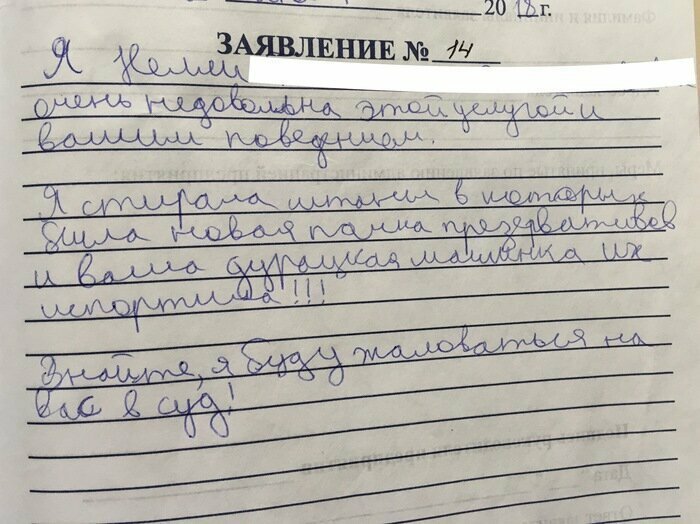 2018 г.
ЗАЯВЛЕНИЕ № 14
Я Нелли
очень недовольна этой услугой и
вашим поведнием.
Я стирала штаны в которых
была новая пачка презервативов
и ваша дурацкая машинка их
испортила!!!
Знайте, я буду жаловаться на
вас в суд!